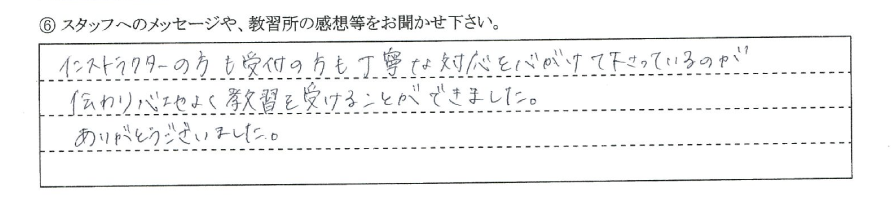 ⑥ スタッフへのメッセージや、教習所の感想等をお聞かせ下さい。
インストラクターの方も受付の方も丁寧な対応を心がけて下さっているのが
伝わり心地よく教習を受けることができました。
ありがとうございました。